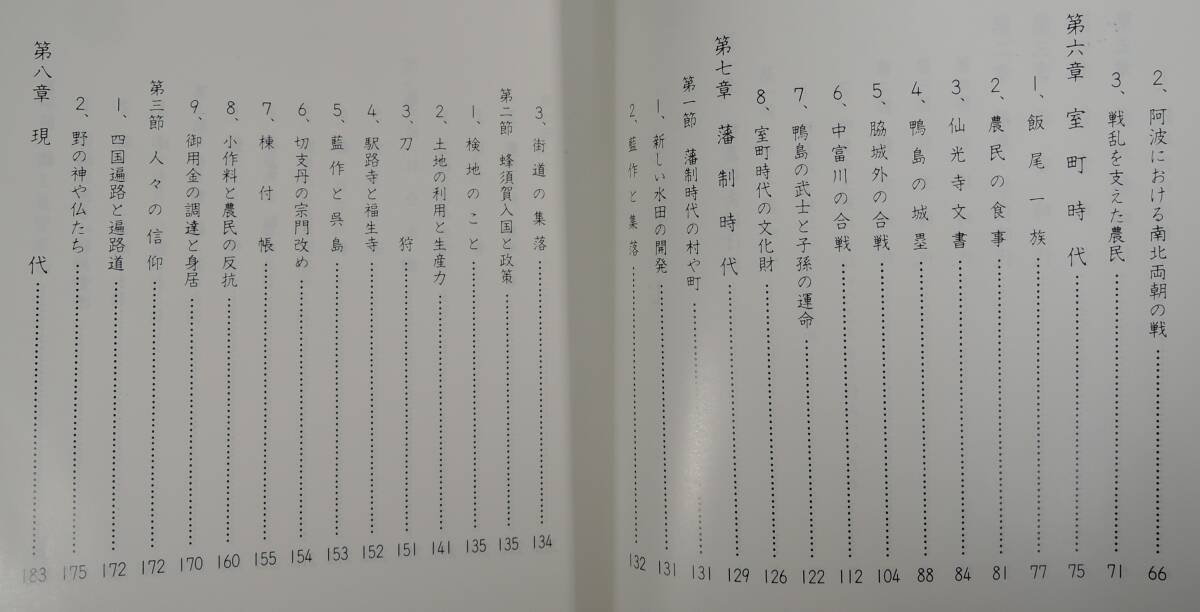 2、阿波における南北両朝の戦……66
3、戦乱を支えた農民……71
第六章 室町時代……75
1、飯尾一族……77
2、農民の食事……81
3、仙光寺文書……84
4、鴨島の城塁……88
5、脇城外の合戦……104
6、中富川の合戦……112
7、鴨島の武士と子孫の運命……122
8、室町時代の文化財……126
第七章 藩制時代……129
第一節 藩制時代の村や町……131
1、新しい水田の開発……131
2、藍作と集落……132
3、街道の集落……134
第二節 蜂須賀入国と政策……135
1、検地のこと……135
2、土地の利用と生産力……141
3、刀狩……151
4、駅路寺と福生寺……152
5、藍作と呉島……153
6、切支丹の宗門改め……154
7、棟付帳……155
8、小作料と農民の反抗……160
9、御用金の調達と身居……170
第三節 人々の信仰……172
1、四国遍路と遍路道……172
2、野の神や仏たち……175
第八章 現代……183